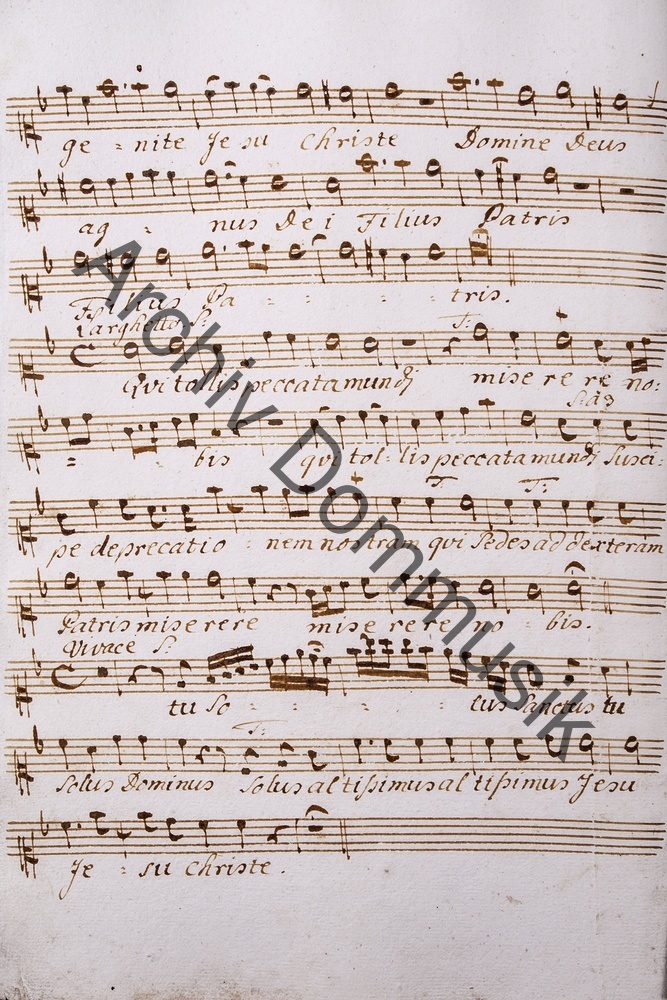 ge = nite Je su Christe Domine Deus
ag - nus De i Filius Patris
Filius Pa - - - - tris.
Larghetto S:
T:
Qui tollis peccata mundi mise re re no:
S: as
= bis qui tol = lis peccata mundi Susci:
T: T:
pe deprecatio = nem nostram qui Sedes ad dexteram
Patris mise rere mise re re no = bis.
Vivace S:
tu So - - - - - lus Sanctus tu
T:
Solus Dominus Solus altißimus altißimus Jesu
Je = su Christe.
Archiv Dommusik